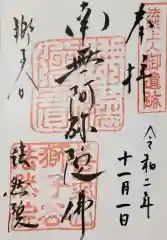 奉拝
法然上人御遺跡
令和二年
十一月一日
南無阿弥陀佛
獅子谷
法然院